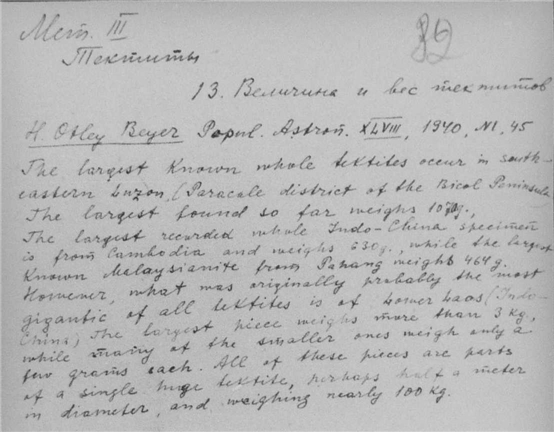 Мет. III
Тектиты
13. Величина и вес тектитов
H. Otley Beyer Popul. Astron. XLVIII, 1940, N1, 45
The largest known whole textites occur in south-
eastern Luzon, (Paracale district of the Bicol Peninsula
The largest found so far weighs g.,
The largest recorded whole Indo-China specimen
is from Cambodia and weighs 630g., while the largest
known Melaysianite from Pahang weighs 464 g.
However, what was originally probably the most
gigantic of all textites is of Lower Laos (Indo-
China) The largest piece weighs more than 3 kg,
while many of the smaller ones weigh only a
few grams each. All of these pieces are parts
of a single huge textite, perhaps half a meter
in diameter, and weighing nearly 100 kg.